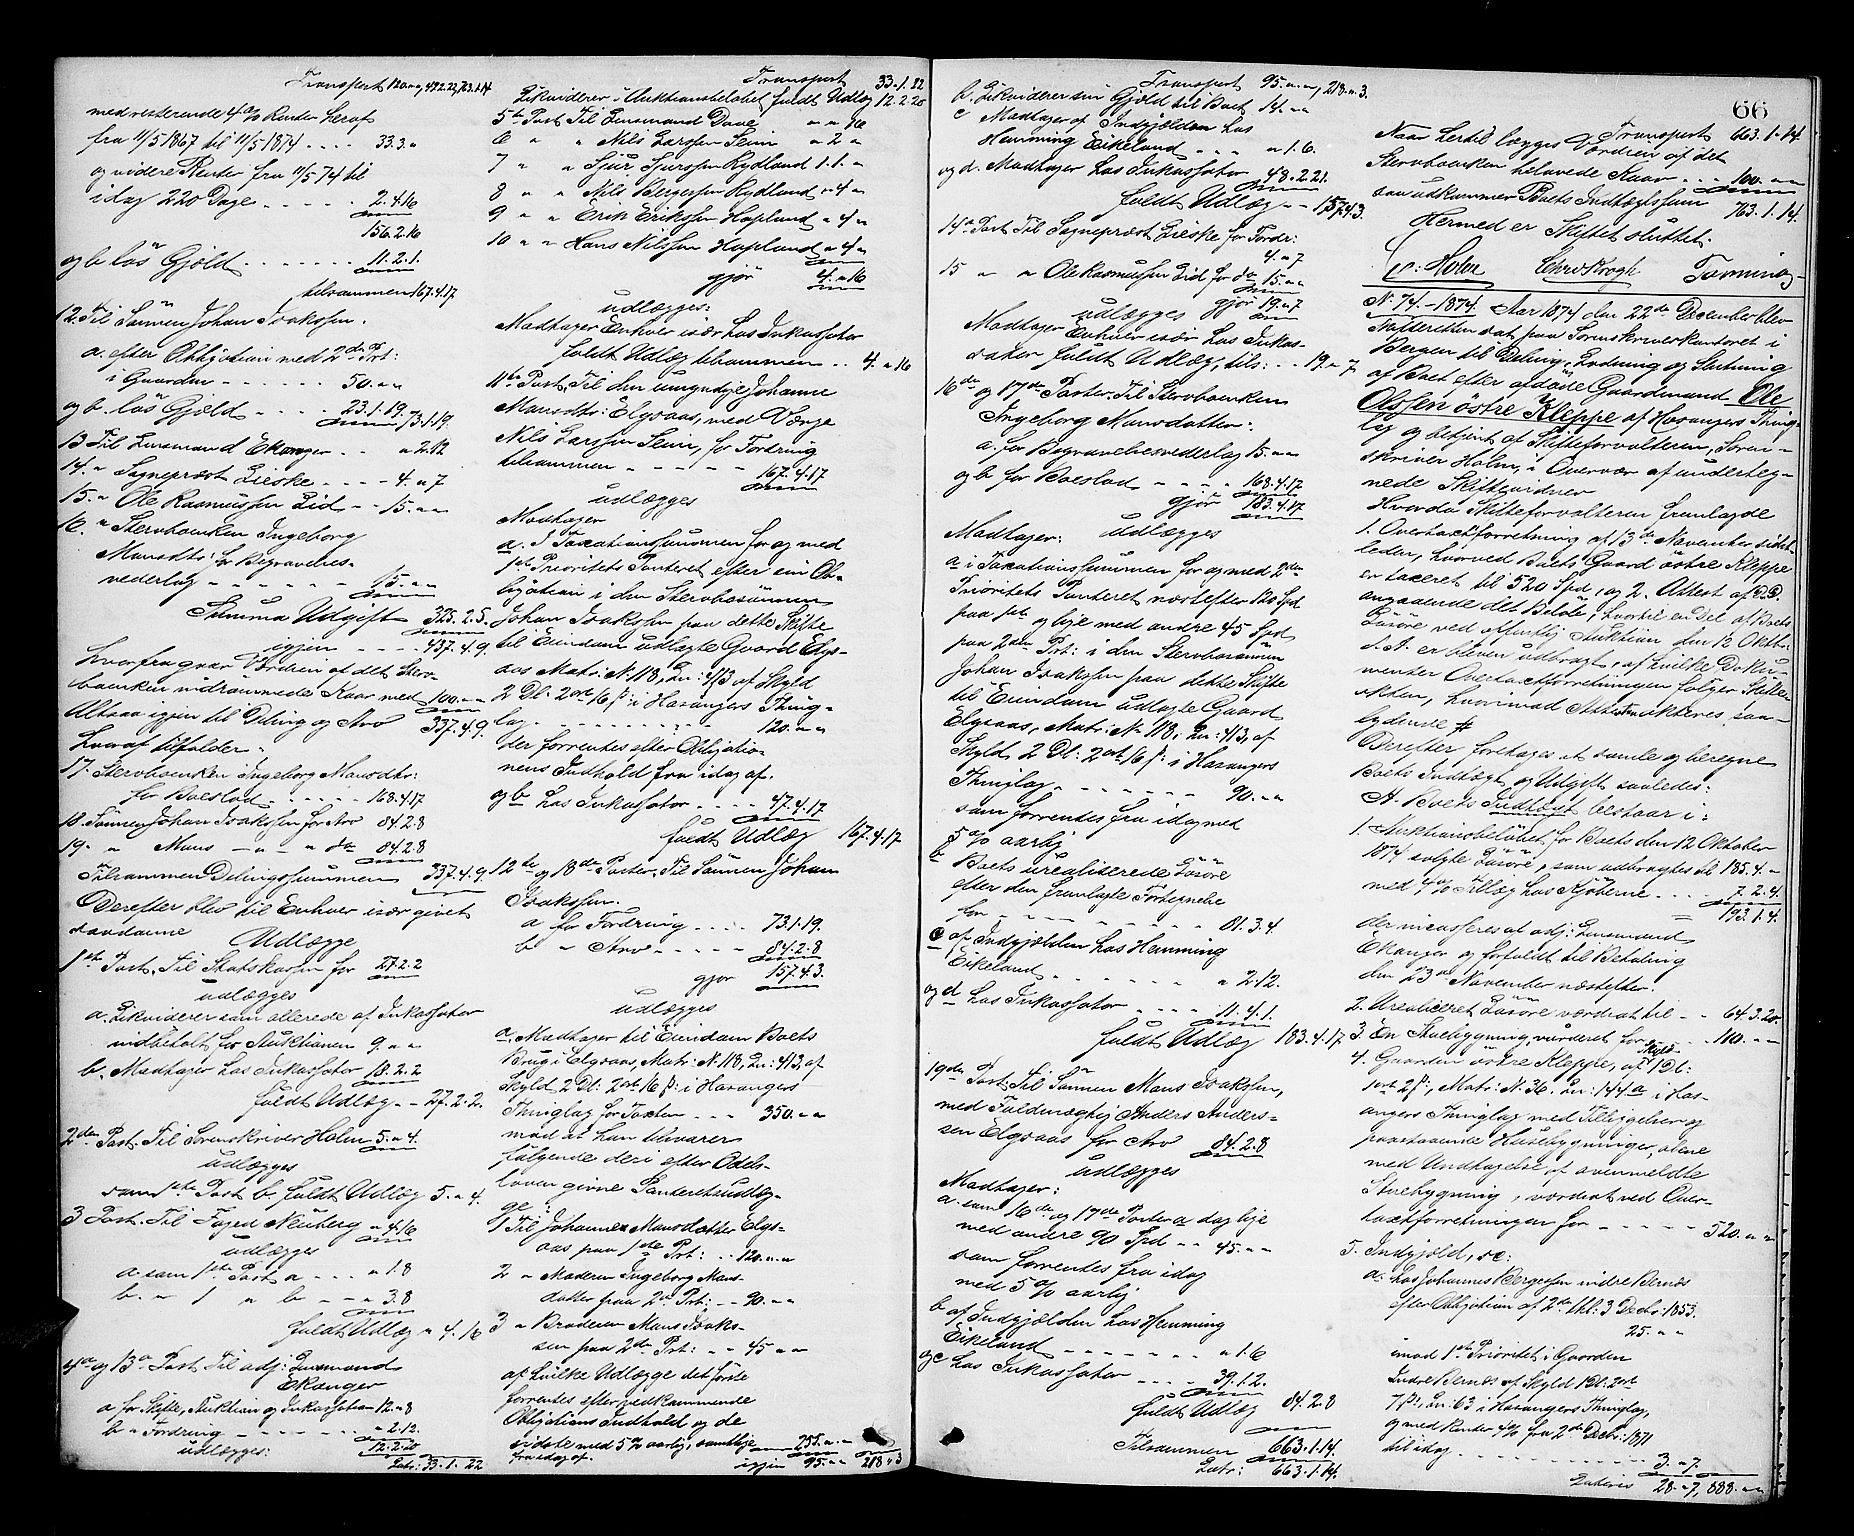 Transport 120.„.„, 492.22, 763.1.14
med resterende 4% Renter heraf
fra 11/5 1867 til 11/5 1874 .... 33.3.„
og videre Renter fra 11/5 74 til
idag 220 Dage ..... 2.4.16
156.2.16
og b. løs Gjæld ....... 11.2.1.
tilsammen 167.4.17
12. Til Sønnen Johan Isaksen.
a. efter Obligation med 2den Prt:
i Gaarden ...... 50.„.„
og b. løs Gjæld .... 23.1.19. 73.1.19.
13 Til Lensmand Ekanger .. „.2.12
14. „ Sognepræst Zieske .... 4.„.7
15. „ Ole Rasmussen Eid .. 15.„.„
16. „ Stervboenken Ingeborg
Monsdtr: for Begravelses-
vederlag ..... 15.„.„
Summa Udgift 325.2.5.
igjen .... 437.4.9.
hvorfra gaar Værdien af det Sterv-
boenken indrømmede Kaar med 100.„.„
Altsaa igjen til Deling og Arv 337.4.9.
hvoraf tilfalder:
17. Stervboenken Ingeborg Monsdtr:
for Boeslod ..... 168.4.17
18. Sønnen Johan Isaksen for Arv 84.2.8
19. „ Mons „ „ do 84.2.8
Tilsammen Delingssummen 337.4.9.
Derefter blev til Enhver især givet
saadanne Udlægge
1ste Post. Til Statskassen for 27.2.2
udlægges
a. Likviderer som allerede af Inkassator
indbetalt for Auktionen 9.„.„
b. Modtager hos Inkassator 18.2.2
fuldt Udlæg .. 27.2.2.
2den Post. Til Sorenskriver Holm 5.„.4.
udlægges
som 1ste Post b. fuldt Udlæg 5.„.4.
3 Post. Til Foged Neuberg „.4.16
udlægges
a. som 1ste Post a ... „.1.8
b. „ 1 „ b ... „.3.8
fuldt Udlæg „.4.16
4de og 13de Post. Til adj: Lensmand
Ekanger
a for Skifte, Auktion og Inkassator 12.„.8
b „ Fordring ..... „.2.12.
udlægges: 12.2.20
Latr: 33.1.22
Transport 33.1.22
Likviderer i Auktionsbeløbet fuldt Udlæg 12.2.20
5te Post Til Lensmand Daae „.„.16
6 „ „ Nils Larssen Seim „.2.„
7 „ „ Sjur Sjurssen Rydland 1.1.„
8 „ „ Nils Børgessen Rydland „.4.„
9 „ „ Erik Erikssen Hopland „.4.„
10 „ „ Hans Nilssen Hopland „.4.„
gjør 4.„.16
udlægges:
Modtager Enhver især hos Inkassator
fuldt Udlæg tilsammen .. 4.„.16
11te Post. Til den umyndige Johanne
Monsdtr: Elgsaas, med Værge
Nils Larssen Seim, for Fordring
tilsammen ..... 167.4.17
udlægges
Modtager
a. I Taxationssummen for og med
1ste Prioritets Panteret efter sin Ob-
ligation i den Stervbosønnen
Johan Isakssen paa dette Skifte
til Eiendom udlagte Gaard Elgs-
aas Matr: N. 118, Ln: 413 af Skyld
2 Dl: 2 ort 16 ß: i Hosangers Thing-
lag ........ 120.„.„
der forrentes efter Obligatio-
nens Indhold fra idag af.
og b hos Inkassator .... 47.4.17
fuldt Udlæg 167.4.17
12te og 18de Poster. Til Sønnen Johan
Isakssen.
a for Fordring .... 73.1.19.
b „ Arv ..... 84.2.8
gjør 157.4.3.
udlægges
a. Modtager til Eiendom Boets
Brug i Elgsaas, Matr: N. 118, Ln: 413, af
Skyld 2 Dl: 2 ort 16 ß: i Hosangers
Thinglag for Taxten ... 350.„.„
mod at han tilsvarer
følgende deri efter Odels-
loven givne Panteretsudlæg-
ge:
1 Til Johanne Monsdatter Elgs-
aas paa 1ste Prt: .. 120.„.„
2 „ Moderen Ingeborg Mons-
datter paa 2den Prt: .. 90.„.„
3 „ Broderen Mons Isaks-
sen paa 2den Prt: .. 45.„.„
af hvilke Udlægge det første
forrentes efter vedkommende
Obligations Indhold og de
sidste med 5% aarlig, samtlige
fra idag af. 255.„.„
igjen 95.„.„ 218.„.3
Transport 95.„.„, 218.„.3.
b. Likviderer sin Gjæld til Boet 14.„.„
c Modtager af Indgjælden hos
Hemming Eikeland ... „.1.6.
og d. Modtager hos Inkassator 48.2.21.
fuldt Udlæg .. 157.4.3.
14de Post Til Sognepræst Zieske for Fordr:
4.„.7
15 „ „ Ole Rasmussen Eid for do 15.„.„
gjør 19.„.7
udlægges
Modtager Enhver især hos Inkas-
sator fuldt Udlæg, tils: .. 19.„.7
16de og 17de Poster: Til Stervboenken
Ingeborg Monsdatter:
a. for Begravelsesvederlag 15.„.„
og b for Boeslod .... 168.4.17
gjør 183.4.17
Modtager: udlægges
a. i Taxationssummen for og med 2den
Prioritets Panteret næstefter 120 Spd
paa 1ste og lige med andre 45 Spd
paa 2den Prt: i den Stervbosønnen
Johan Isakssen paa dette Skifte
til Eiendom udlagte Gaard
Elgsaas, Matr: N. 118, Ln: 413, af
Skyld 2 Dl: 2 ort 16 ß: i Hosangers
Thinglag ...... 90.„.„
som forrentes fra idag med
5% aarlig
b Boets urealiserede Løsøre
efter den fremlagte Fortegnelse
for ...... 81.3.4
c af Indgjælden hos Hemming
Eikeland ...... „.2.12.
og d hos Inkassator .... 11.4.1.
fuldt Udlæg 183.4.17
19de Post. Til Sønnen Mons Isakssen,
med Fuldmægtig Anders Anders-
sen Elgsaas for Arv 84.2.8
udlægges
Modtager:
a. som 16de og 17de Poster a dog lige
med andre 90 Spd .. 45.„.„
som forrentes fra idag
med 5% aarlig
b af Indgjælden hos Hemming
Eikeland ....... „.1.6
og c hos Inkassator .... 39.1.2.
fuldt Udlæg 84.2.8
Tilsammen 663.1.14.
Latr: 663.1.14.
66
Transport 663.1.14.
Naar hertil lægges Værdien af det
Stervboenken helavede Kaar ... 100.„.„
saa udkommer Boets Indtægtssum 763.1.14.
Hermed er Skiftet sluttet.
Holm Chr. Krogh Torming
N. 74.–1874. Aar 1874 den 22de December blev
Skifteretten sat paa Sorenskriverkontoret i
Bergen til Deling, Lodning og Slutning
af Boet efter afdøde Gaardmand Ole
Olssen østre Kleppe af Hosangers Thing-
lag og betjent af Skifteforvalteren, Soren-
skriver Holm, i Overvær af underteg-
nede Skiftevidner
Hvorda Skifteforvalteren fremlagde
1. Overtaxtforretning af 13de November sidst-
leden, hvorved Boets Gaard østre Kleppe
er taxeret til 520 Spd, og 2. Attest af D.D.
angaaende det Beløb, hvortil en Del af Boets
Løsøre ved offentlig Auktion den 12 Oktbr.
d. A. er bleven udbragt, af hvilke Doku-
menter Overtaxtforretningen følger Skifte-
akten, hvorimod Attesten akteres, saa-
lydende #
Derefter foretages at samle og beregne
Boets Indtægt og Udgift saaledes:
A. Boets Indtægt bestaar i:
1. Auktionsbeløbet for Boets den 12 Oktober
1874 solgte Løsøre, som udbragtes til 185.4.„
med 4% Tillæg hos Kjøberne ... 7.2.4.
193.1.4.
der incasseres af adj: Lensmand
Ekanger og forfaldt til Betaling
den 23de November næstefter.
2. Urealiseret Løsøre værderet til .. 64.3.20.
3. En Stuebygning, vurderet for .. 110.„.„
4. Gaarden østre Kleppe, af Skyld 1 Dl:
1 ort 2 ß:, Matr: N. 36. Ln: 144a i Hos-
angers Thinglag med Tilliggelser og
paastaaende Husebygninger, alene
med Undtagelse af ovenmeldte
Stuebygning, værderet ved Over-
taxtforretningen for ..... 520.„.„
5. Indgjæld, sc:
a. hos Johannes Børgessen indre Bernæs
efter Obligation af 2den thl: 3 Decbr: 1853.
25.„.„
imod 1ste Prioritet i Gaarden
Indre Bernæs af Skyld 1 Dl: 2 ort
7 ß:, Ln: 63 i Hosangers Thinglag,
og med Renter 4% fra 2den Decbr: 1871
til idag ........ 3.„.7.
Lateris 28.„.7, 888.„.„